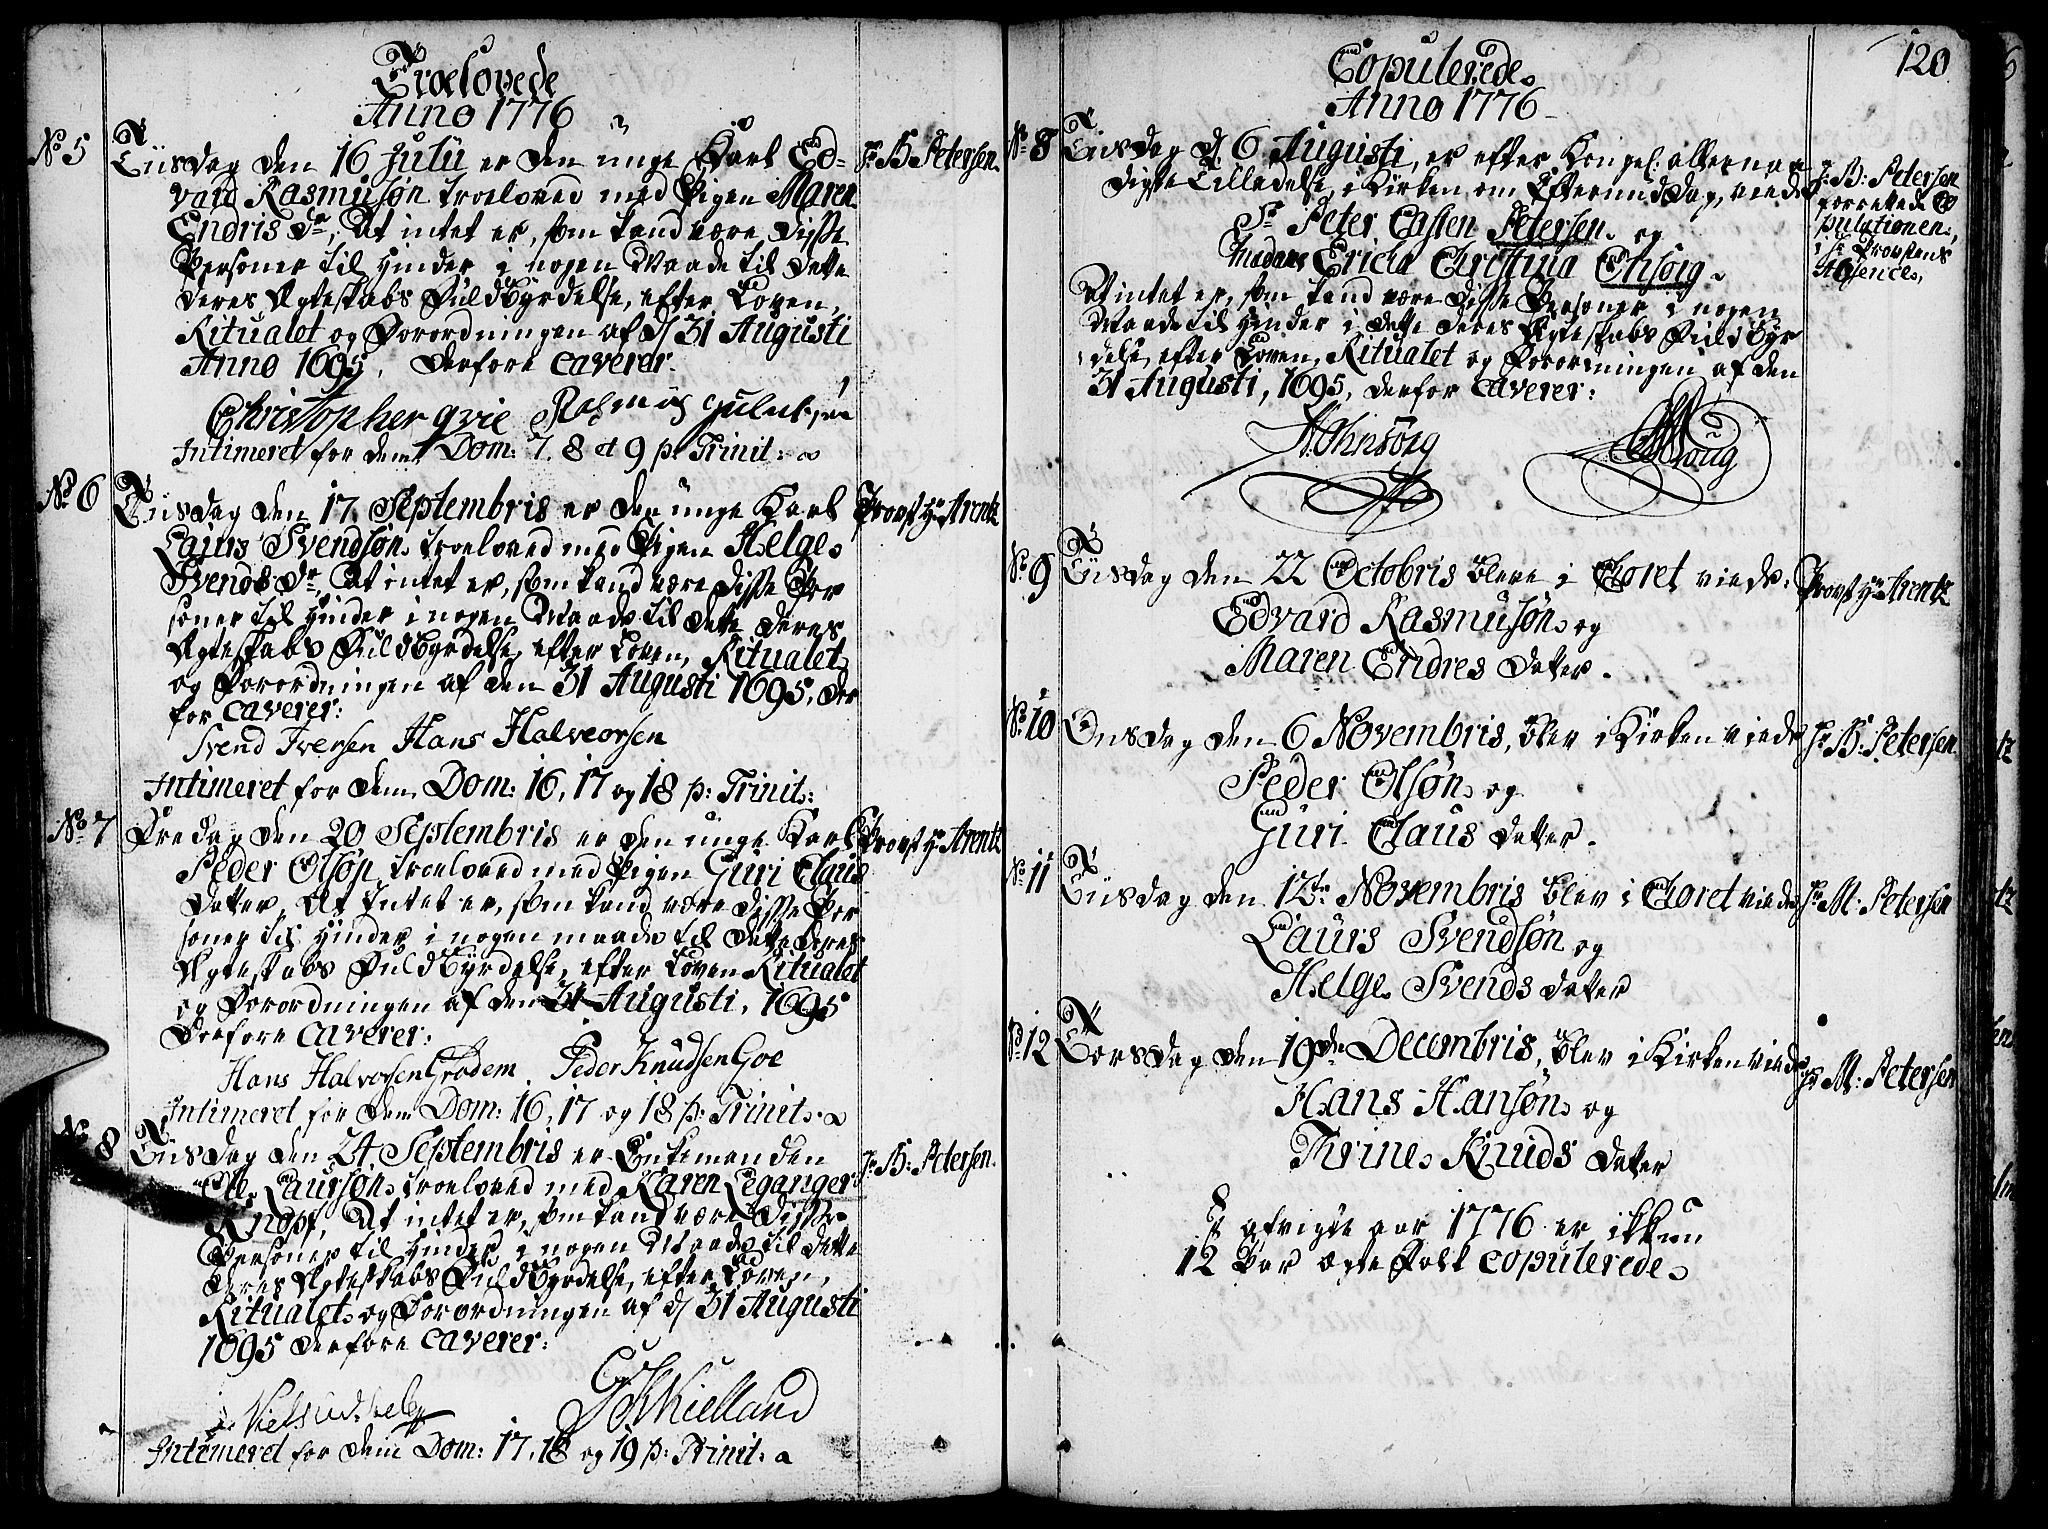 Troelovede
Anno 1776
No 5
Tiisdag den 16 Julii er den unge Karl Ed-
vard Rasmusøn troeloved med Pigen Maren
Endris Dr, At intet er, som kand være disse
Personer til Hinder i nogen Maade til dette
deres Ægteskabs Fuldbyrdelse, efter Loven,
Ritualet og Forordningen af d 31 Augusti
Anno 1695, derfore caverer.
Christopher qvie Rasmus
Intimeret for dem Dom: 7. 8 et 9 p. Trinit:
Sr. B. Petersen
No 6
Tiisdag den 17. Septembris er den unge Karl
Laurs Svendsøn troeloved med Pigen Helge
Svends Dr, At intet er, som kand være disse Per
soner til Hinder i nogen Maade til dette deres
Ægteskabs Fuldbyrdelse, efter Loven, Ritualet
og Forordningen af den 31 Augusti 1695, der
for caverer:
Svend Iversen Hans Halveorsen
Intimeret for dem. Dom: 16, 17 og 18 p: Trinit:
Provst Hr Arentz
No 7
Fredag den 20 Septembris er den unge Karl
Peder Olsøn troeloved med Pigen Guri Claus
datter, At Intet er, som kand være disse Per
soner til Hinder i nogen maade til dette deres
Ægteskabs Fuldbyrdelse, efter Loven Ritualet
og Forordningen af den 31 Augusti, 1695
derfore caverer:
Hans Halvorsen Grødem Peder Knudsen Goe
Intimeret for dem Dom: 16, 17 og 18 p: Trinit:
Provst Hr Arentz
No 8
Tiisdag den 24 Septembris er Enkemanden
Ole Laursøn troeloved med Karen Leganger
Knopf, At intet er, som kand være disse
Personer til Hinder i nogen Maade til dette
deres Ægteskabs Fuldbyrdelse, efter Loven,
Ritualet og Forordningen af d 31 Augusti
1695 derfore caverer:
Niels G Kielland
Intimeret for dem Dom: 17, 18 og 19 p: Trinit:
Sr. B: Petersen
120
Copulerede
Anno 1776
No 8
Tiisdag d. 6 Augusti, er efter Kongel: allernaa
digste Tilladelse, i Kirken om Eftermiddag, viede
Sr Peter Casten Petersen og
Madame Ericha Christina Ohnsorg
At intet er, som kand være disse Personer i nogen
Maade til Hinder i dette deres Ægteskabs Fuldbyr
delse, efter Loven, Ritualet og Forordningen af den
31 Augusti, 1695, derfor caverer:
Ohnsorg
Sr. B: Petersen
forrettede Co
pulationen,
i Hr Provstens
Absence,
No 9
Tiisdag den 22 Octobris bleve i Choret viede
Edvard Rasmusøn og
Maren Endres datter.
Provst Hr Arentz
No 10
Onsdag den 6 Novembris, blev i Kirken viede
Peder Olsøn og
Guri Claus datter.
Sr. B: Petersen
No 11
Tiisdag den 12te Novembris blev i Choret viede
Laurs Svendsøn og
Helge Svends datter
Sr. M: Petersen
No 12
Torsdag den 19de Decembris, blev i Kirken viede
Hans Hansøn og
Thrine Knuds datter
Sr. M: Petersen
I afvigte aar 1776 er ikkun
12 Par ægte Folk copulerede